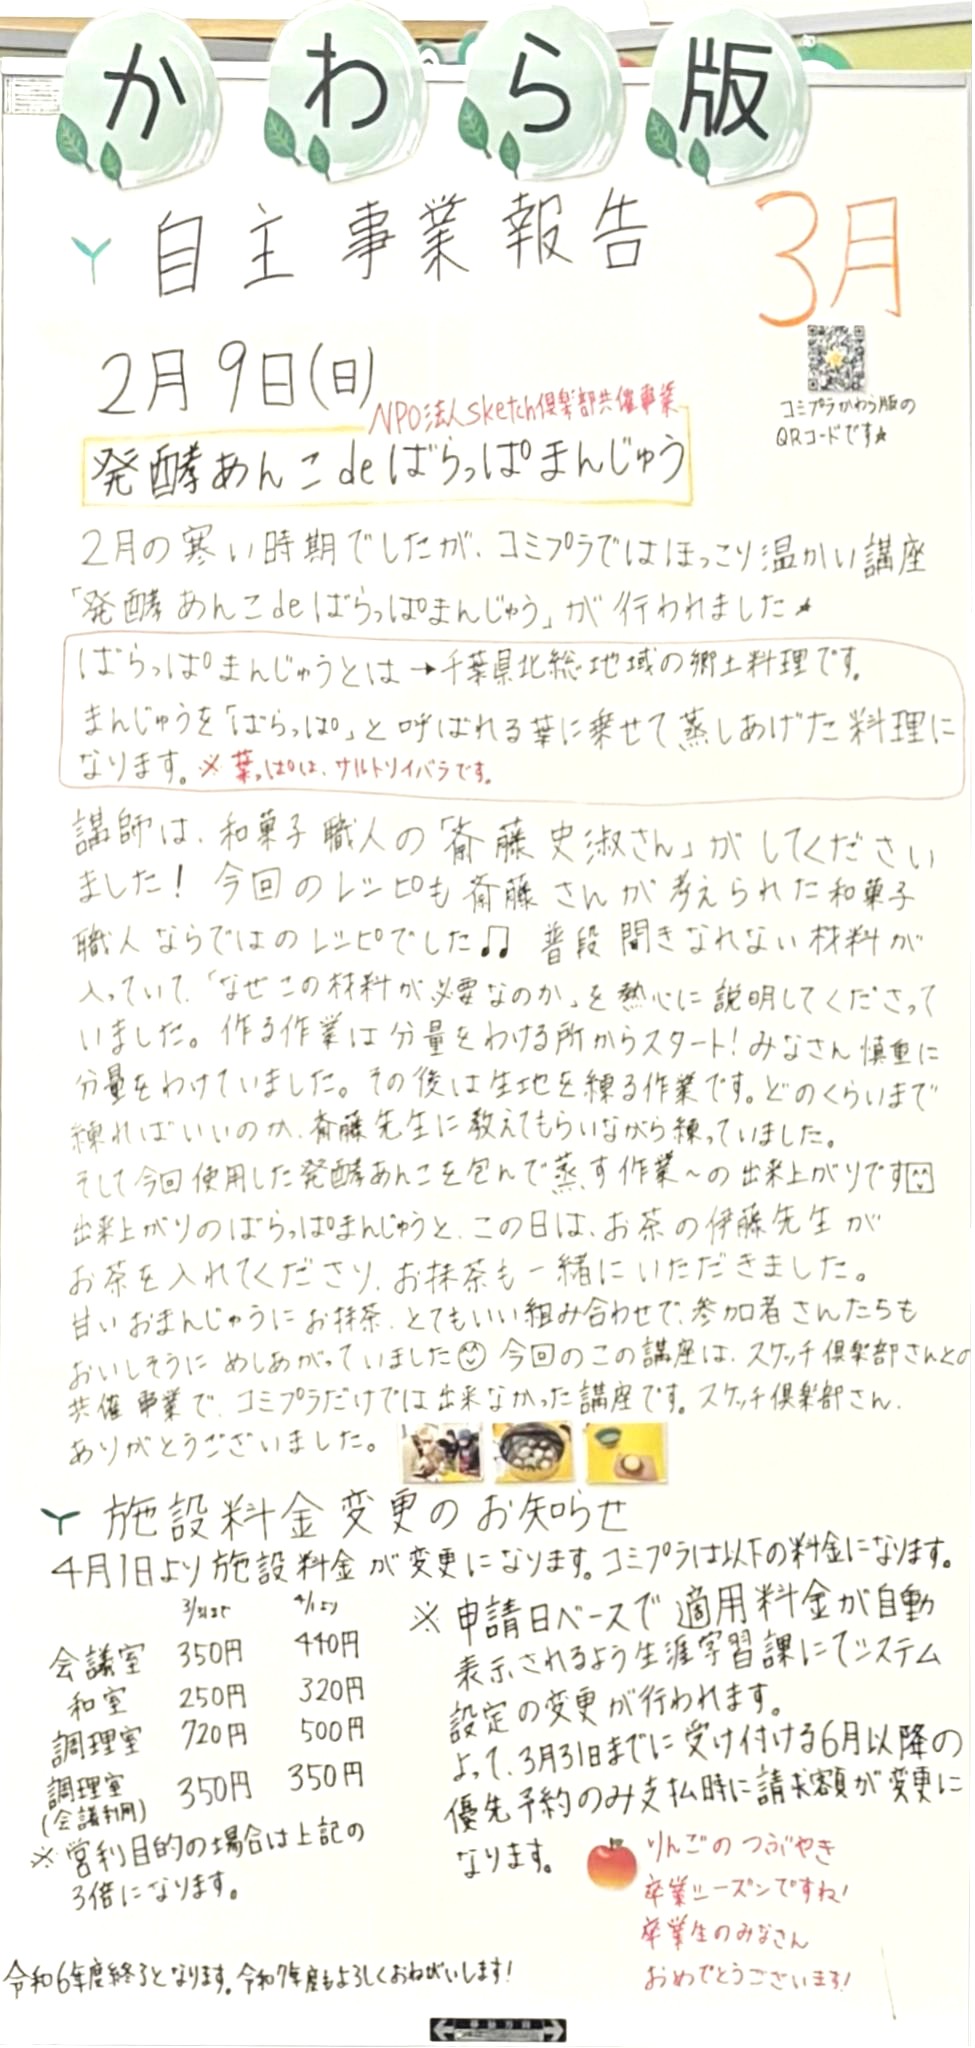 かわら版
自主事業報告
3月
2月9日(日)
コミプラかわら版の
QRコードです★
NPO法人sketch倶楽部共催事業
発酵あんこdeばらっぱまんじゅう
2月の寒い時期でしたが、コミプラではほっこり温かい講座
「発酵あんこdeばらっぱまんじゅう」が行われました★
ばらっぱまんじゅうとは→千葉県北総地域の郷土料理です。
まんじゅうを「ばらっぱ」と呼ばれる葉に乗せて蒸しあげた料理に
なります。※葉っぱは、サルトリイバラです。
講師は、和菓子職人の「斎藤史淑さん」がしてください
ました! 今回のレシピも斎藤さんが考えられた和菓子
職人ならではのレシピでした♫ 普段聞きなれない材料が
入っていて、「なぜこの材料が必要なのか」を熱心に説明してくださって
いました。作る作業は分量をわける所からスタート!みなさん慎重に
分量をわけていました。その後は生地を練る作業です。どのくらいまで
練ればいいのか、斎藤先生に教えてもらいながら練っていました。
そして今回使用した発酵あんこを包んで蒸す作業~の出来上がりです
出来上がりのばらっぱまんじゅうと、この日は、お茶の伊藤先生が
お茶を入れてくださり、お抹茶も一緒にいただきました。
甘いおまんじゅうにお抹茶、とてもいい組み合わせで、参加者さんたちも
おいしそうにめしあがっていました 今回のこの講座は、スケッチ倶楽部さんとの
共催事業で、コミプラだけでは出来なかった講座です。スケッチ倶楽部さん、
ありがとうございました。
施設料金変更のお知らせ
4月1日より施設料金が変更になります。コミプラは以下の料金になります。
3/31まで 4/1より
会議室 350円 440円
和室 250円 320円
調理室 720円 500円
調理室 350円 350円
(会議利用)
※営利目的の場合は上記の
3倍になります。
※申請日ベースで適用料金が自動
表示されるよう生涯学習課にてシステム
設定の変更が行われます。
よって、3月31日までに受け付ける6月以降の
優先予約のみ支払時に請求額が変更に
なります。
りんごのつぶやき
卒業シーズンですね!
卒業生のみなさん
おめでとうございます!
令和6年度終了となります。令和7年度もよろしくおねがいします!